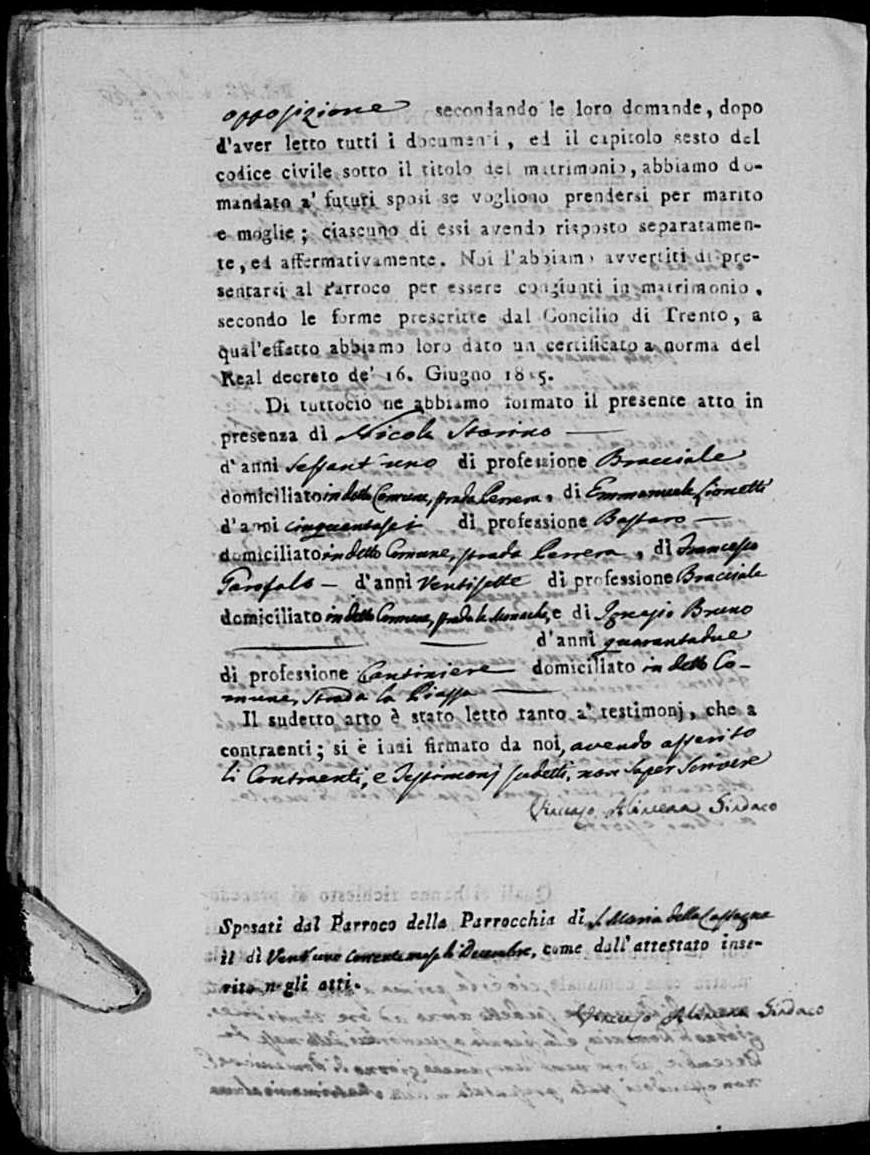 opposizione secondando le loro domande, dopo
d'aver letto tutti i documenti, ed il capitolo sesto del
codice civile sotto il titolo del matrimonio, abbiamo do-
mandato a' futuri sposi se vogliono prendersi per marito
e moglie; ciascuno di essi avendo risposto separatamen-
te, ed affermativamente. Noi l'abbiamo avvertiti di pre-
sentarsi al Parroco per essere congiunti in matrimonio,
secondo le forme prescritte dal Concilio di Trento, a
qual'effetto abbiamo loro dato un certificato a norma del
Real decreto de' 16. Giugno 1815.
Di tuttociò ne abbiamo formato il presente atto in
presenza di Nicola Storino
d'anni sessant'uno di professione Bracciale
domiciliato in detto Comune, strada Perrera, di Emmanuele Lionetti
d'anni cinquantasei di professione Bastaro
domiciliato in detto Comune, strada Perrera, di Francesco
Garofalo d'anni ventisette di professione Bracciale
domiciliato in detto Comune, strada le Monache, e di Ignazio Bruno
d'anni quarantadue
di professione Cantiniere domiciliato in detto Co-
mune, strada la Piazza
Il sudetto atto è stato letto tanto a' testimonj, che a
contraenti; si è indi firmato da noi, avendo asserito
li Contraenti, e Testimonj sudetti, non saper scrivere
Vincenzo Sindaco
Sposati dal Parroco della Parrocchia di S. Maria della
il dì Vent'uno corrente mese di Decembre, come dall'attestato inse-
rito negli atti.
Vincenzo Sindaco